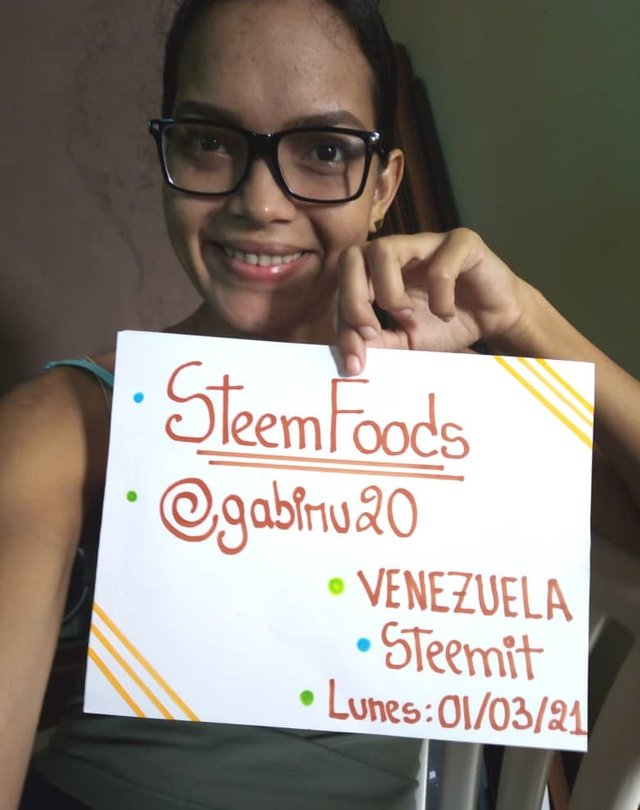 SteemFoods
@gabimu20
VENEZUELA
Steemit
Lunes: 01/03/21